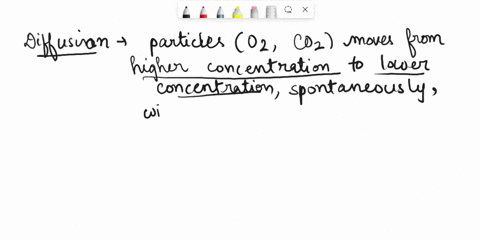 Diffusion → particles (O2, CO2) moves from
higher concentration to lower
concentration, spontaneously,
wi